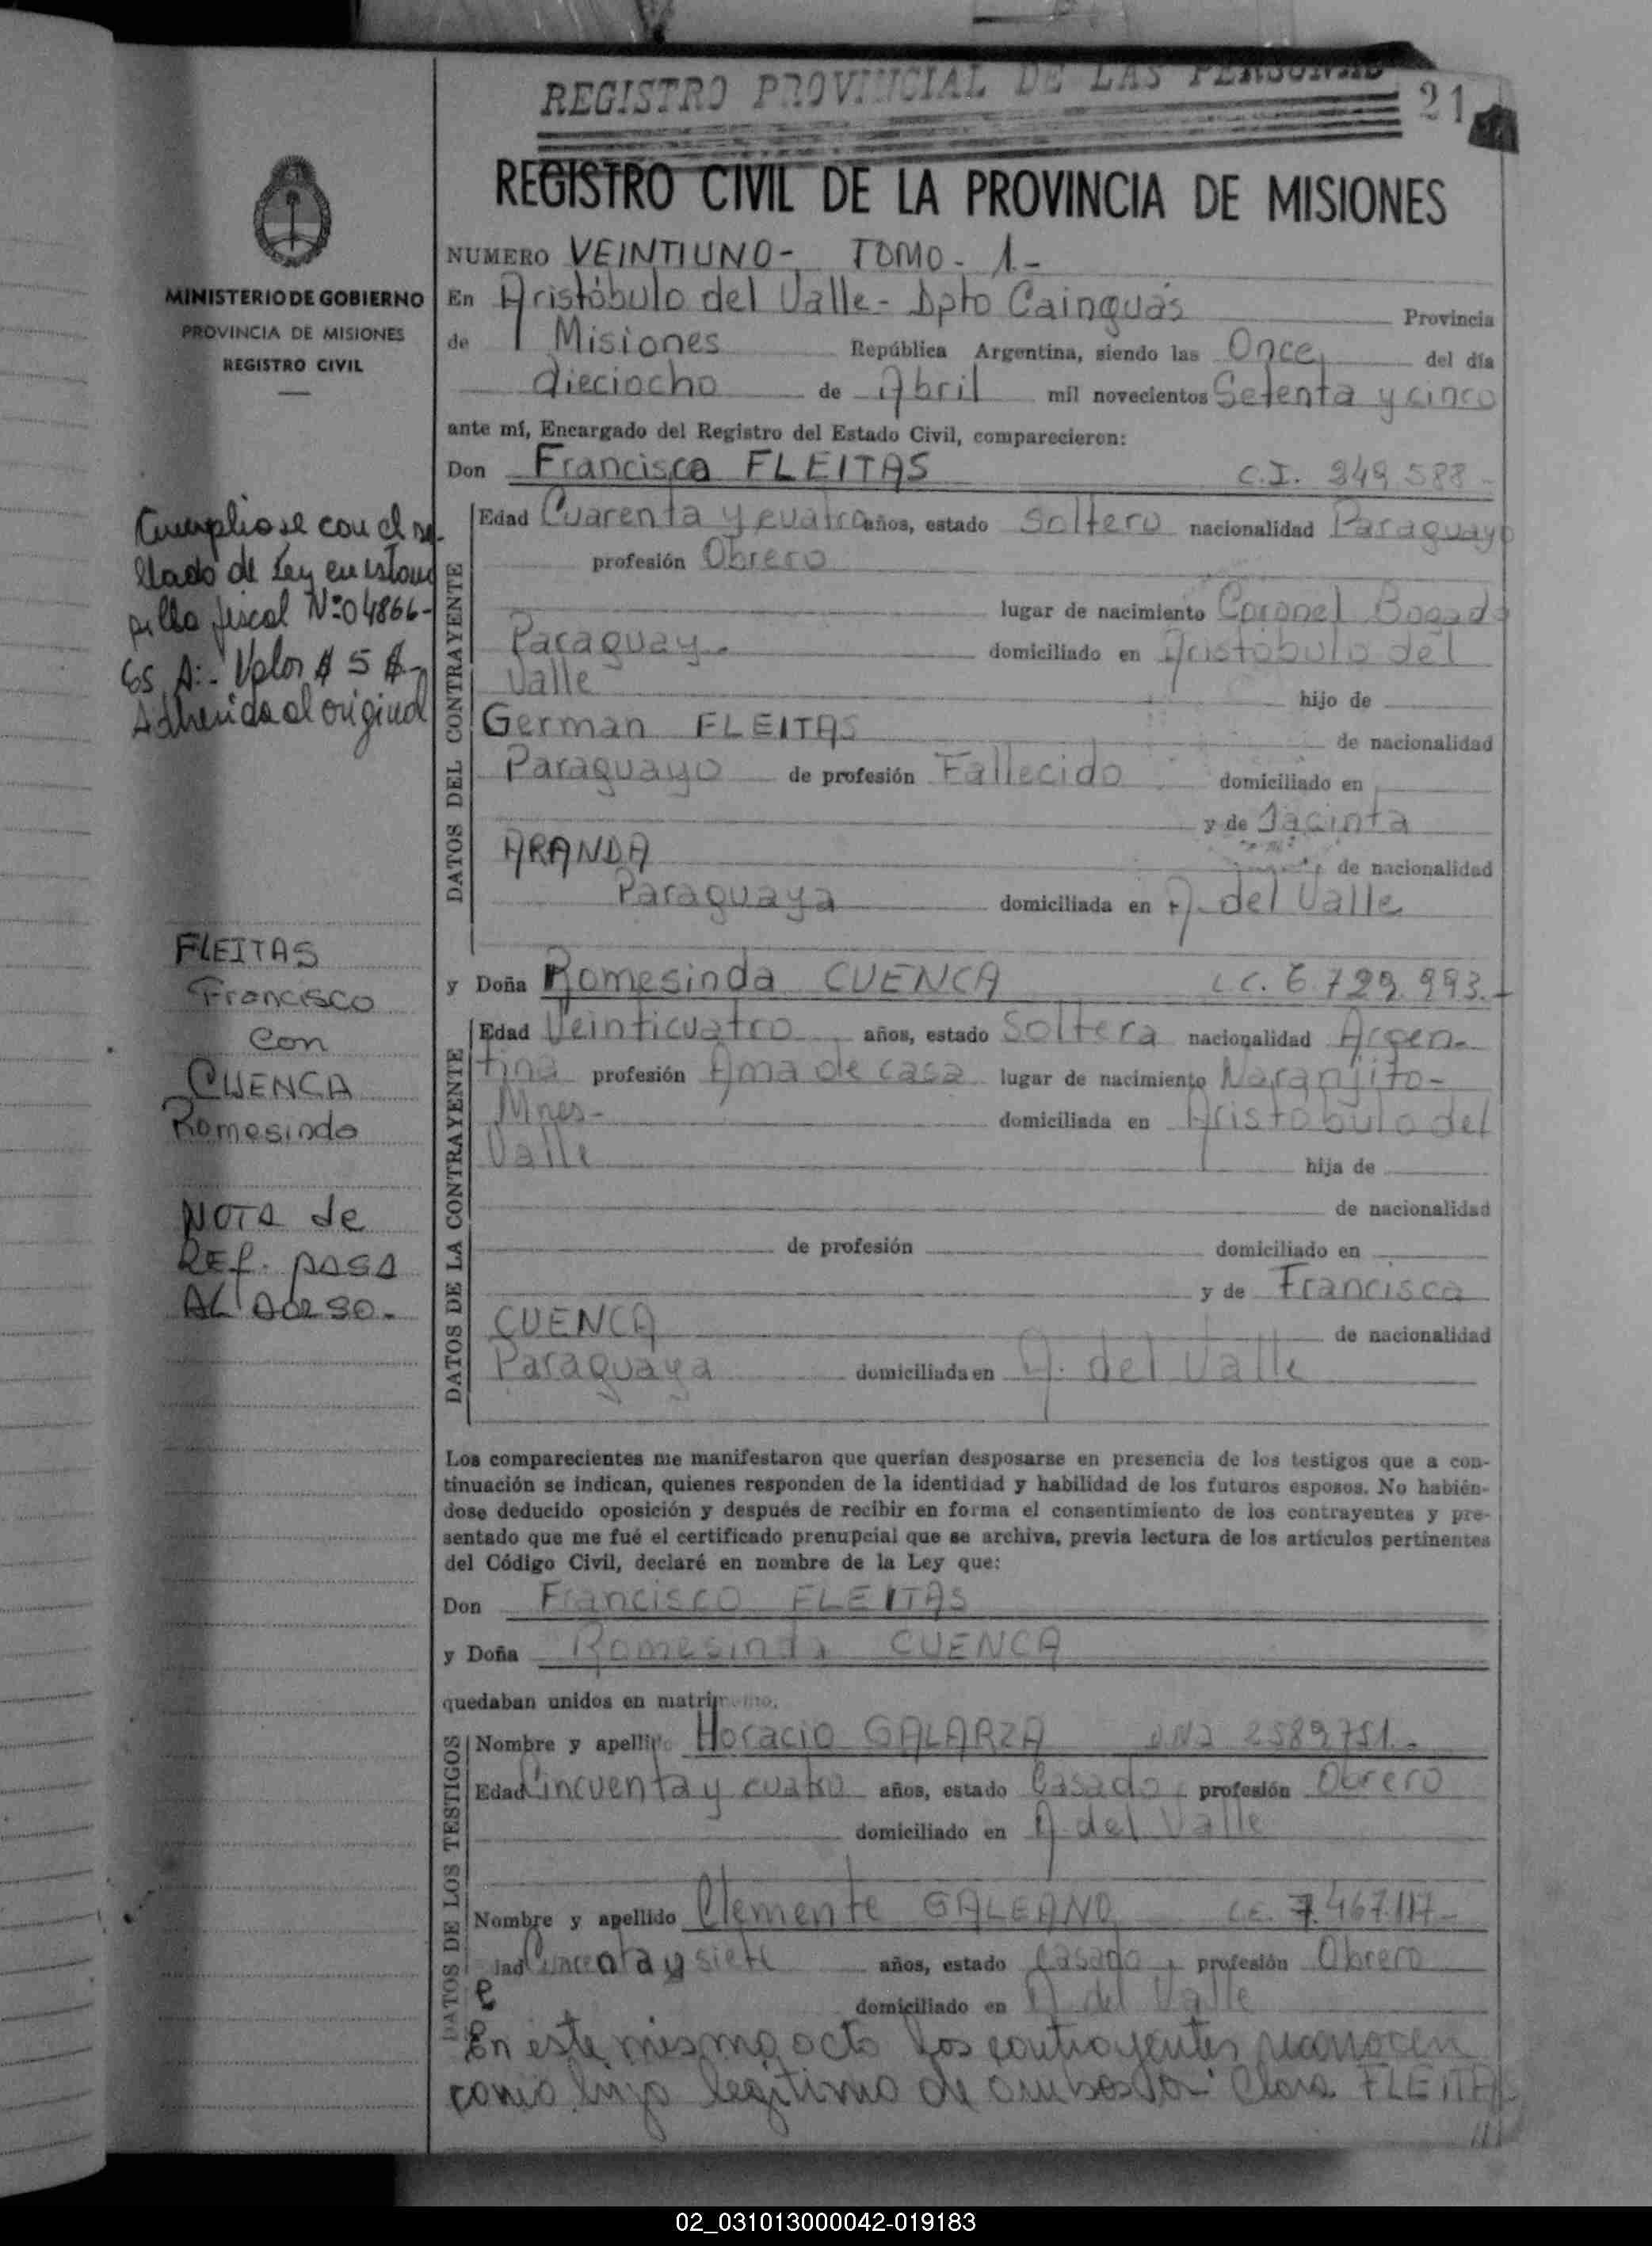 REGISTRO PROVINCIAL DE LAS PERSONAS
21
REGISTRO CIVIL DE LA PROVINCIA DE MISIONES
MINISTERIO DE GOBIERNO
PROVINCIA DE MISIONES
REGISTRO CIVIL
NUMERO VEINTIUNO- TOMO- 1-
En Aristóbulo del Valle- Dpto Cainguás Provincia
de Misiones República Argentina, siendo las Once, del día
dieciocho de Abril mil novecientos Setenta y cinco
ante mí, Encargado del Registro del Estado Civil, comparecieron:
Don Francisco FLEITAS C.I. 349 588-
Cumpliose con el se-
llado de Ley en estam
pilla fiscal Nº 04866-
Valor $ 5
Adherida al original
DATOS DEL CONTRAYENTE
Edad Cuarenta y cuatro años, estado Soltero nacionalidad Paraguayo
profesión Obrero
lugar de nacimiento Coronel Bogado
Paraguay. domiciliado en Aristóbulo del
Valle hijo de
German FLEITAS de nacionalidad
Paraguayo de profesión Fallecido domiciliado en
y de Jacinta
ARANDA de nacionalidad
Paraguaya domiciliada en A. del Valle
FLEITAS
Francisco
Con
CUENCA
Romesinda
NOTA de
REF. PASA
AL DORSO.-
y Doña Romesinda CUENCA L.C. 6.729.993.-
DATOS DE LA CONTRAYENTE
Edad Veinticuatro años, estado Soltera nacionalidad Argen-
tina profesión Ama de casa lugar de nacimiento Naranjito-
Mnes- domiciliada en Aristóbulo del
Valle hija de
de nacionalidad
de profesión domiciliado en
y de Francisca
CUENCA de nacionalidad
Paraguaya domiciliada en A. del Valle
Los comparecientes me manifestaron que querían desposarse en presencia de los testigos que a con-
tinuación se indican, quienes responden de la identidad y habilidad de los futuros esposos. No habién-
dose deducido oposición y después de recibir en forma el consentimiento de los contrayentes y pre-
sentado que me fué el certificado prenupcial que se archiva, previa lectura de los artículos pertinentes
del Código Civil, declaré en nombre de la Ley que:
Don Francisco FLEITAS
y Doña Romesinda CUENCA
quedaban unidos en matrimonio.
DATOS DE LOS TESTIGOS
Nombre y apellido Horacio GALARZA DNI 2589751.-
Edad Cincuenta y cuatro años, estado Casado profesión Obrero
domiciliado en A. del Valle
Nombre y apellido Clemente GALEANO C.E. 7.467.117-
dad y siete años, estado Casado profesión Obrero
e
domiciliado en A. del Valle
En este mismo acto los contrayentes reconocen
como hijo legítimo de ambos Clara FLEITAS
///
02_031013000042-019183